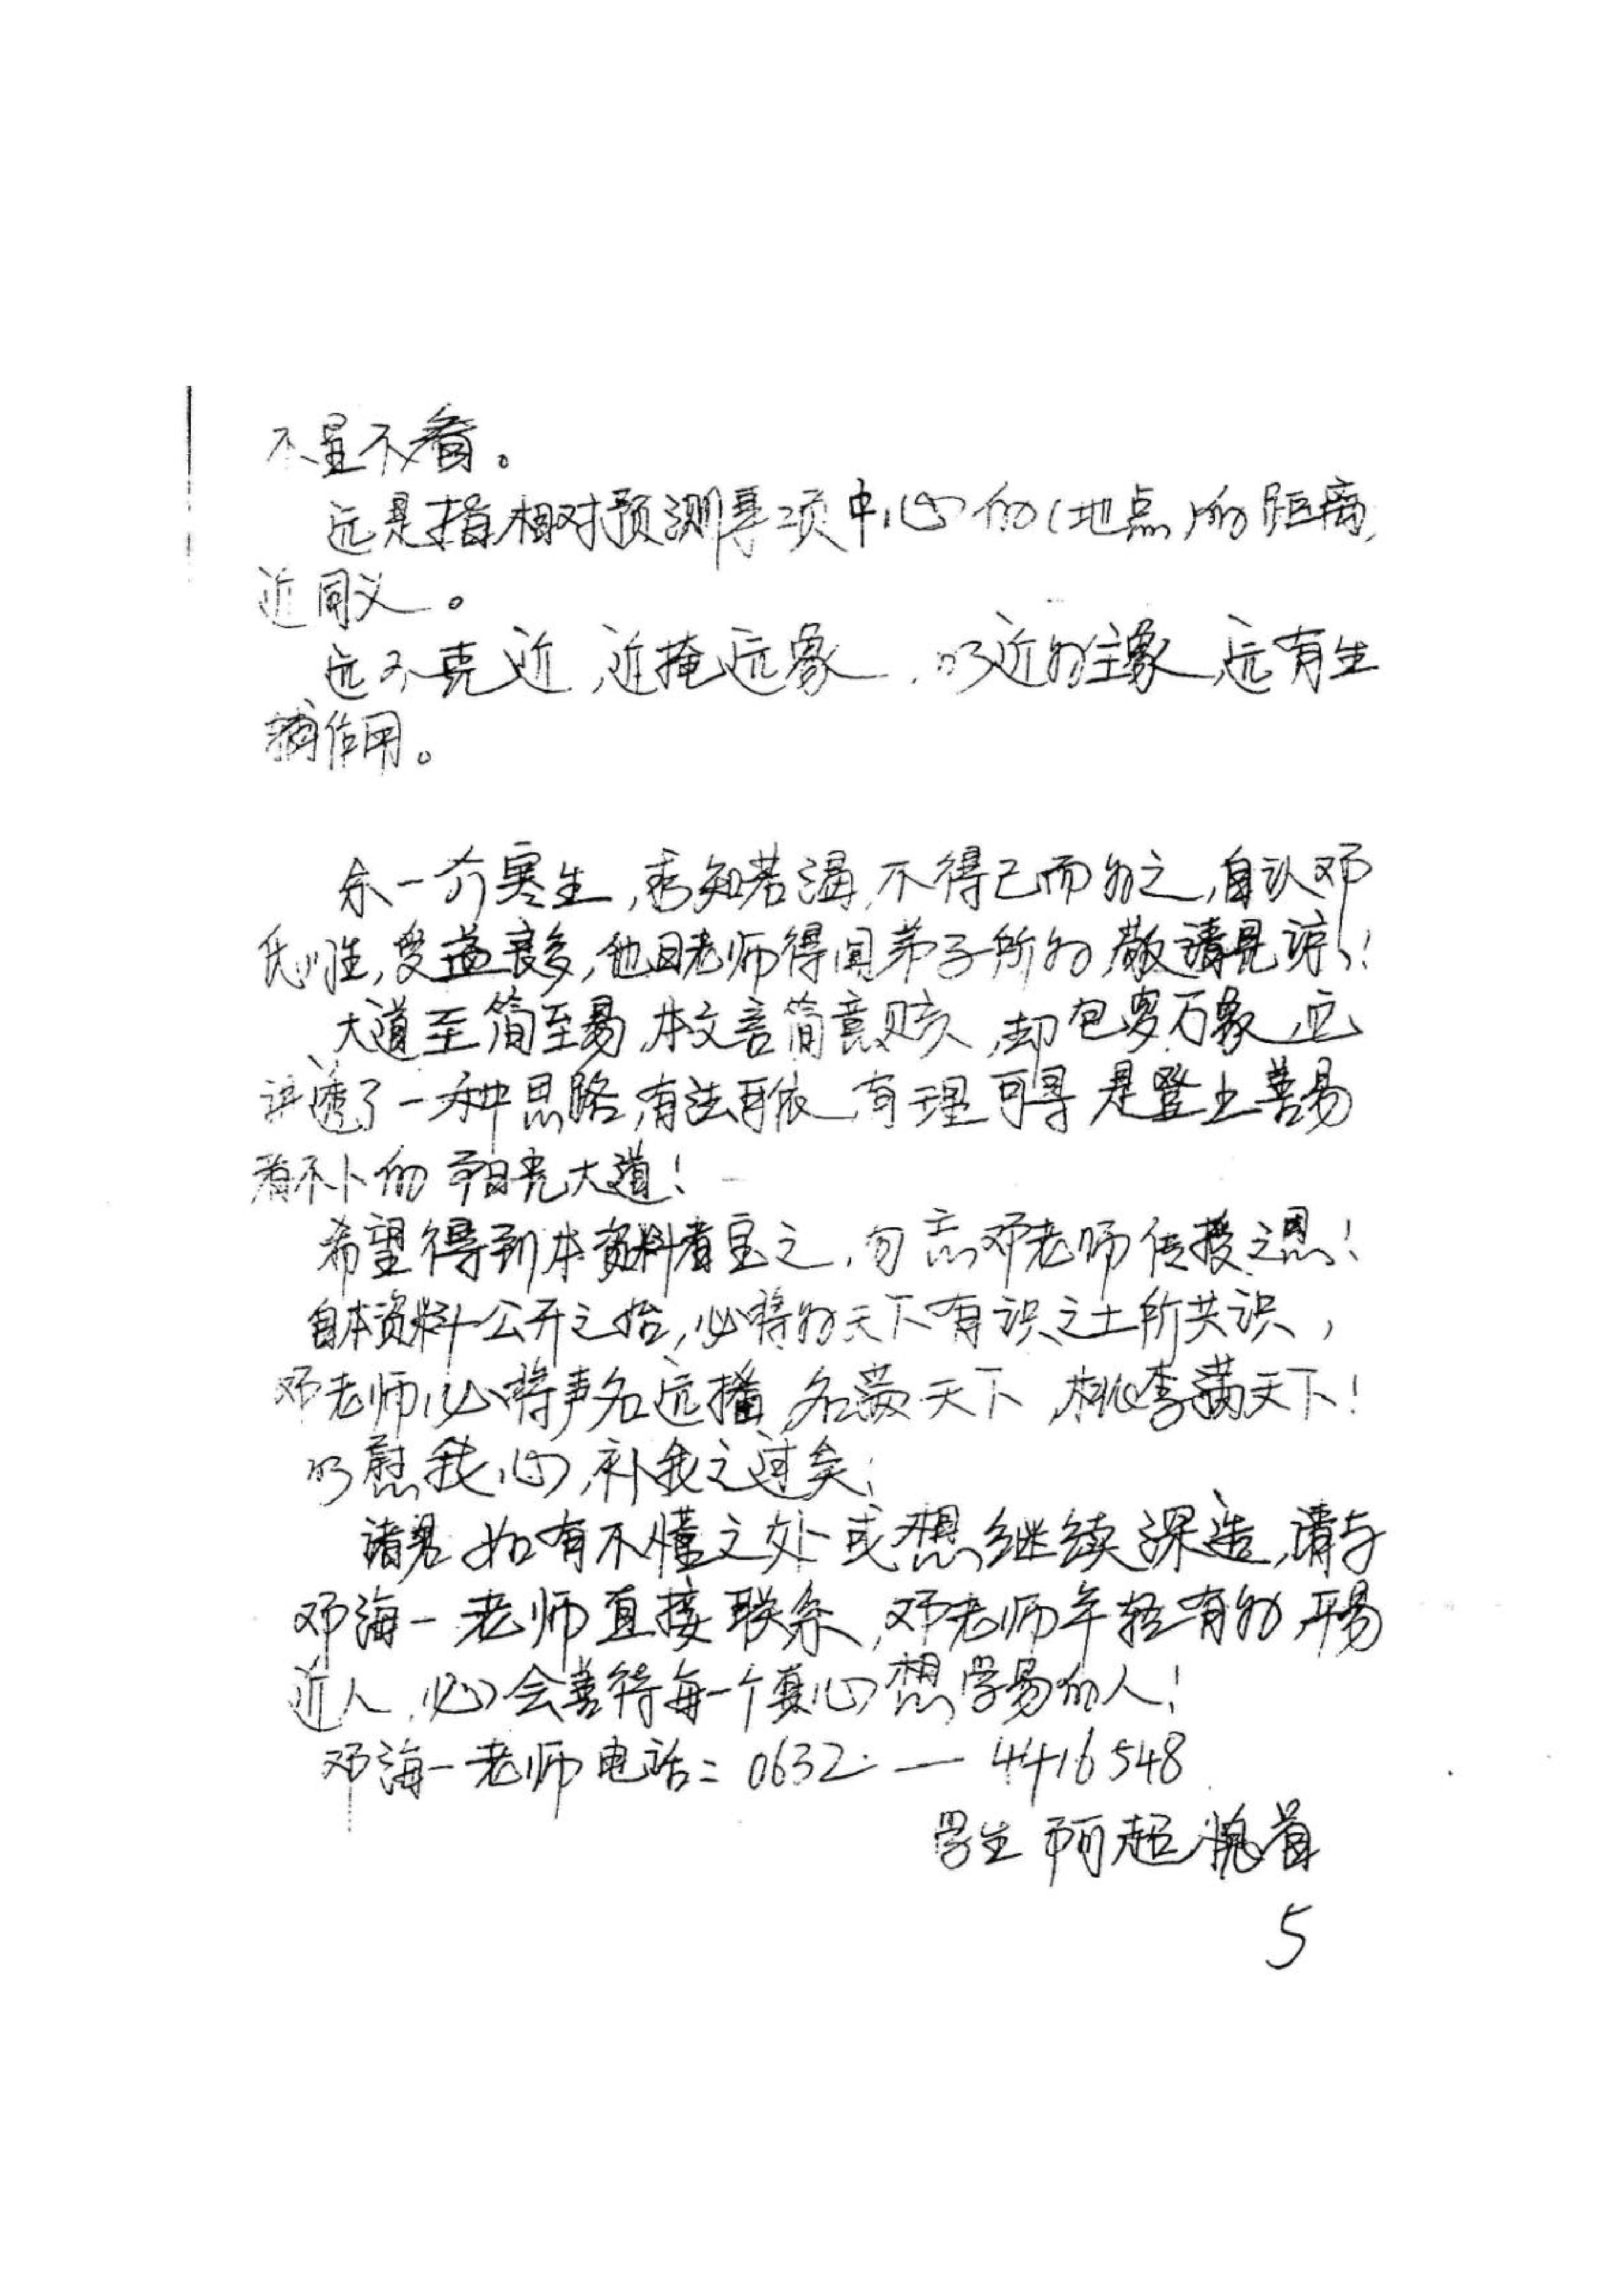 不显不看。
远是指相对预测事项中心的(地点)的距离,
近同义。
远不克近,近掩远象,以近为主象,远有生
辅作用。
余一介寒生,求知若渴,不得已而为之,自认邓
氏,受益良多,他日老师得闻弟子所为,敬请见谅!
大道至简至易,本文言简意赅,却包罗万象,它
讲透了一种思路,有法可依,有理可寻,是登上善易
者不卜的阳光大道!
希望得到本资料者宝之,勿忘邓老师传授之恩!
自本资料公开之始,必将为天下有识之士所共识,
邓老师必将声名远播,名满天下,桃李满天下!
以慰我心,补我之过矣!
诸君如有不懂之处或想继续深造,请与
邓海一老师直接联系,邓老师年轻有为,平易
近人,必会善待每一个真心想学易的人!
邓海一老师电话:0632—4416548
学生阿超愧首
5